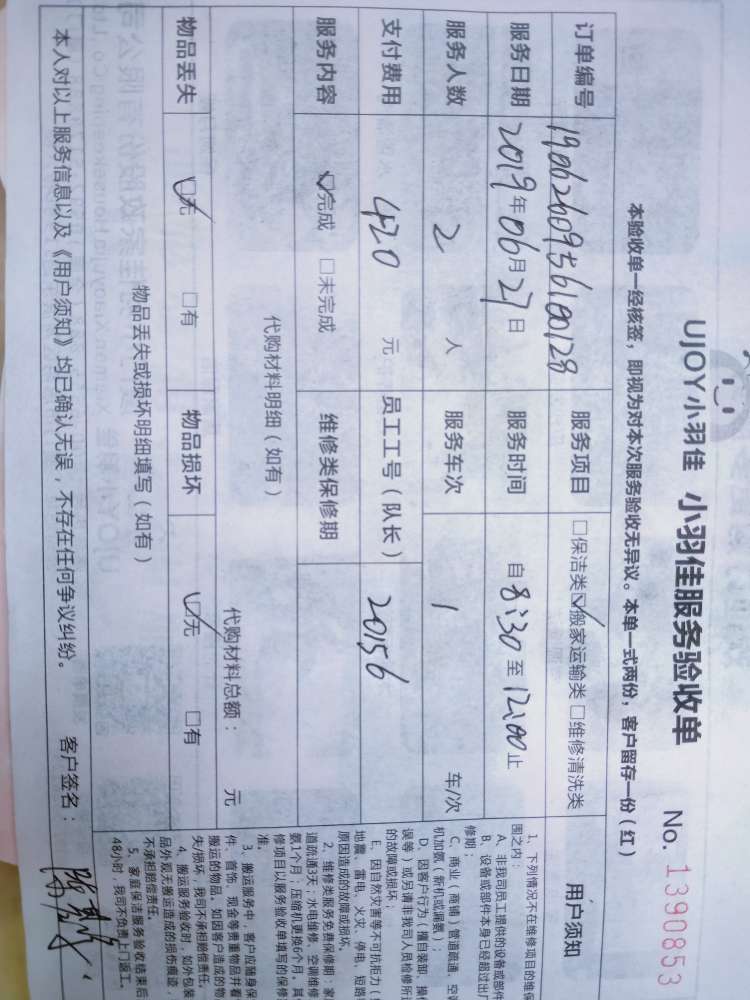 UJOY小羽佳 小羽佳服务验收单 No. 1390853
本验收单一经核签，即视为对本次服务验收无异议。本单一式两份，客户留存一份（红）
订单编号 1906260956100128 服务项目 □保洁类☑搬家运输类□维修清洗类
服务日期 2019年06月27日 服务时间 自8:30至12:00止
服务人数 2人 服务车次 1 车/次
支付费用 420元 员工工号（队长） 20156
服务内容 ☑完成 □未完成 维修类保修期
代购材料明细（如有） 代购材料总额： 元
物品丢失 ☑无 □有 物品损坏 ☑无 □有
物品丢失或损坏明细填写（如有）
本人对以上服务信息以及《用户须知》均已确认无误，不存在任何争议纠纷。 客户签名：
用户须知
1、下列情况不在维修项目的维保
围之内：
A、非我司员工提供的设备或部件
B、设备或部件本身已经超过出厂
修期；
C、商业（商铺）管道疏通、空调
机加氨（新机或漏氨）；
D、因客户行为（擅自装卸、操作
误等）或另请非我司人员检修所
的故障或损坏；
E、因自然灾害等不可抗拒力（
地震、雷电、火灾、停电、短路
原因造成的故障或损坏。
2、维修类服务免费保修期：家
道疏通3天；水电维修、空调维修
氨1个月，压缩机更换6个月。其
修项目以服务验收单填写的保修
准。
3、搬运服务中，客户应随身保
件、首饰、现金等贵重物品并看
搬运的物品。如因客户造成的物
失/损坏，我司不承担赔偿责任。
4、搬运服务验收时，如外包装
品外观无搬运造成的损伤痕迹，
不承担赔偿责任。
5、家庭保洁服务验收结束后
48小时，我司不负责上门返工。